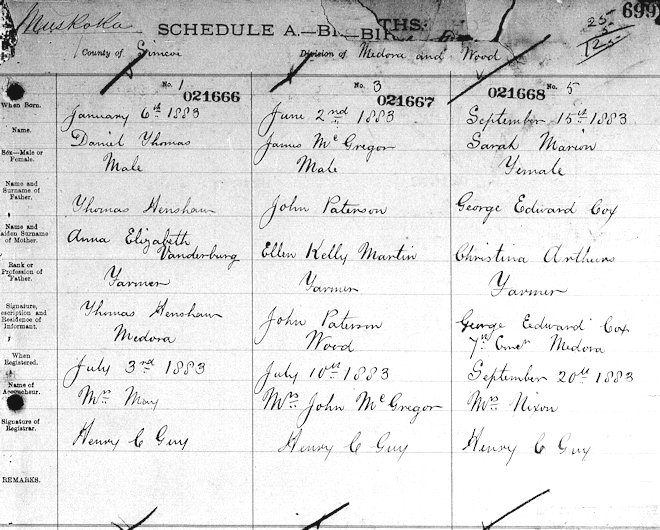 Muskoka
SCHEDULE A.—BIRTHS. 699
County of Simcoe Division of Medora and Wood
25
5
125
No. 1 No. 3 No. 5
021666 021667 021668
When Born. January 6th 1883 June 2nd 1883 September 15th 1883
Name. Daniel Thomas James McGregor Sarah Marion
Sex—Male or Female. Male Male Female
Name and Surname of Father. Thomas Henshaw John Paterson George Edward Cox
Name and Maiden Surname of Mother. Anna Elizabeth Vanderburg Ellen Kelly Martin Christina Arthurs
Rank or Profession of Father. Farmer Farmer Farmer
Signature, Description and Residence of Informant. Thomas Henshaw Medora John Paterson Wood George Edward Cox 7th Con Medora
When Registered. July 3rd 1883 July 10th 1883 September 20th 1883
Name of Accoucheur. Mrs May Mrs John McGregor Mrs Nixon
Signature of Registrar. Henry C Guy Henry C Guy Henry C Guy
REMARKS.